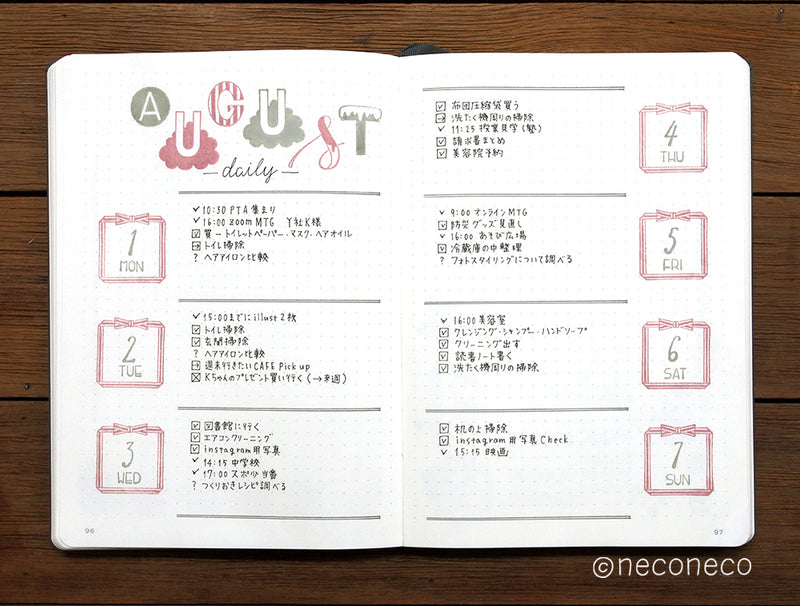 AUGUST
daily
1
MON
✓ 10:30 PTA集まり
✓ 16:00 zoom MTG Y社K様
☑ 買→トイレットペーパー・マスク・ヘアオイル
→ トイレ掃除
? ヘアアイロン比較
2
TUE
✓ 15:00までにillust2枚
☑ トイレ掃除
☑ 玄関掃除
? ヘアアイロン比較
→ 週末行きたいCAFE Pick up
☒ Kちゃんのプレゼント買い行く(→来週)
3
WED
☑ 図書館に行く
☑ エアコンクリーニング
☑ instagram用写真
✓ 14:15 中学校
✓ 17:00 スポ少当番
? つくりおきレシピ調べる
96
☑ 布団圧縮袋買う
→ 洗たく機周りの掃除
✓ 11:25 授業見学(塾)
☑ 請求書まとめ
☑ 美容院予約
4
THU
✓ 9:00 オンラインMTG
☑ 防災グッズ見直し
✓ 16:00 あそび広場
☑ 冷蔵庫の中整理
? フォトスタイリングについて調べる
5
FRI
✓ 16:00 美容室
☑ クレンジング・シャンプー・ハンドソープ
☑ クリーニング出す
☑ 読書ノート書く
☑ 洗たく機周りの掃除
6
SAT
☑ 机の上掃除
☑ instagram用写真Check
✓ 15:15 映画
7
SUN
97
©neconeco